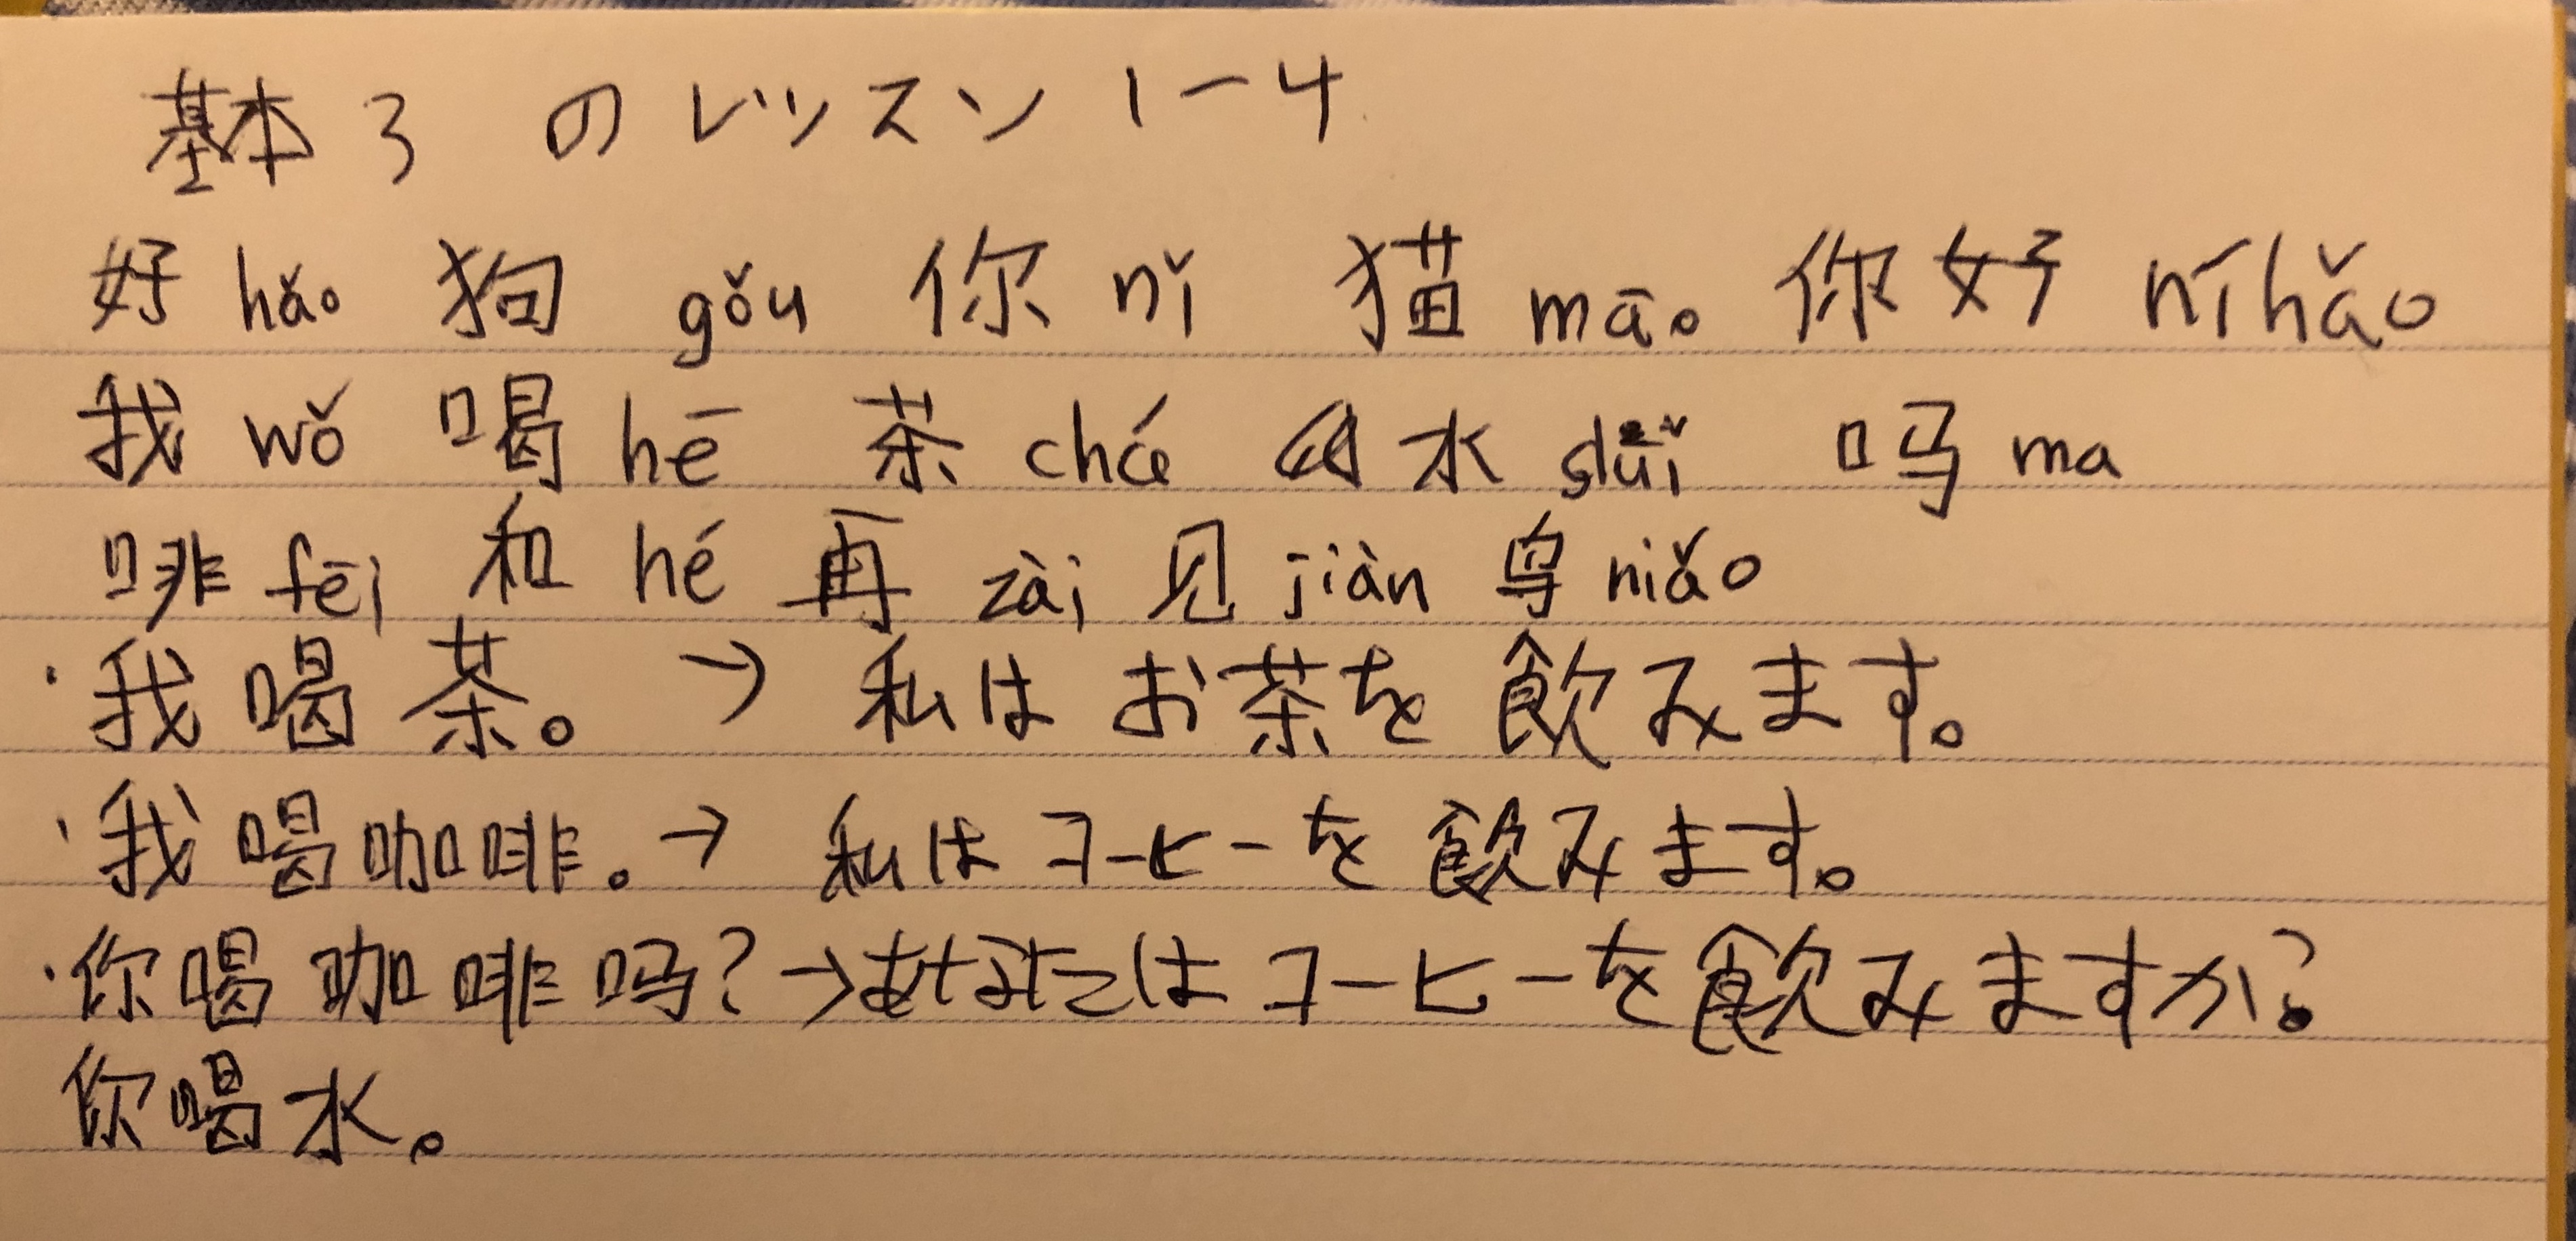 基本3 のレッスン 1-4
好 hǎo 狗 gǒu 你 nǐ 猫 māo 你好 níhǎo
我 wǒ 喝 hē 茶 chá 水 shuǐ 吗 ma
啡 fēi 和 hé 再 zài 见 jiàn 鸟 niǎo
・我喝茶。→ 私はお茶を飲みます。
・我喝咖啡。→ 私はコーヒーを飲みます。
・你喝咖啡吗?→あなたはコーヒーを飲みますか?
你喝水。